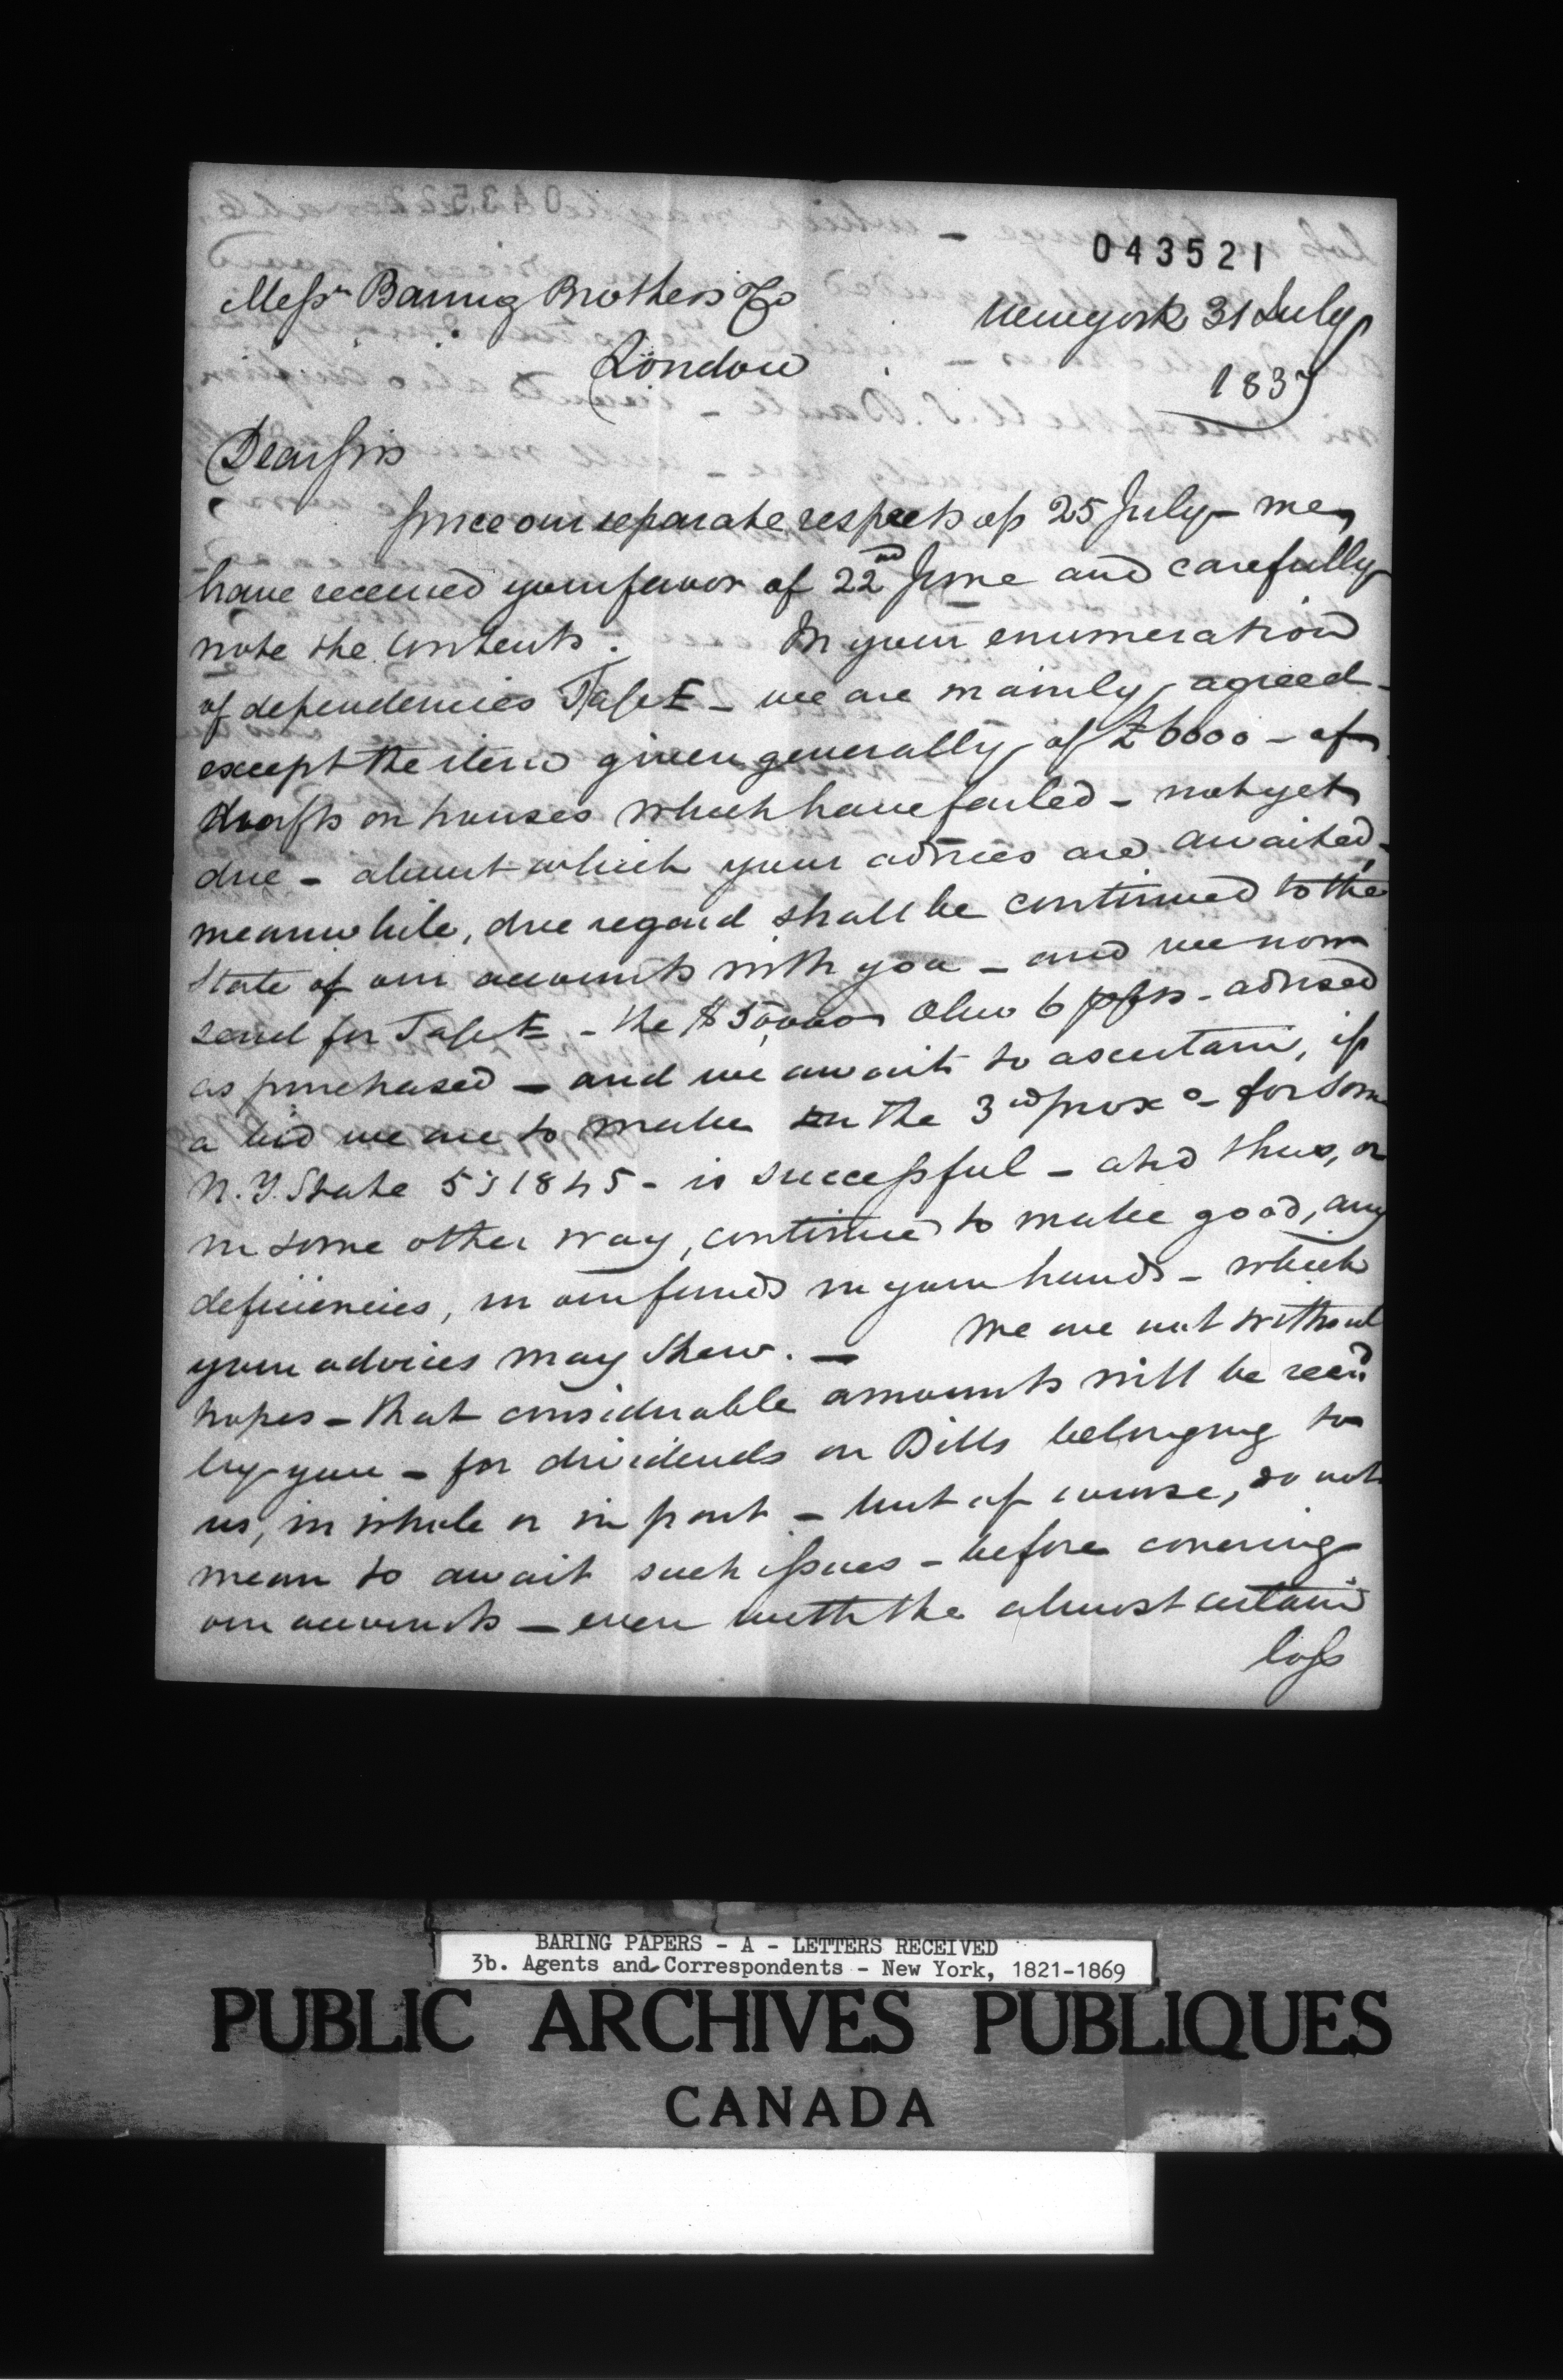 043521
Messrs Baring Brothers & Co
London
New york 31 July
1837
Dear Sirs
Since our separate respects of 25 July - we
have received your favor of 22nd June and carefully
note the contents. In your enumeration
of dependencies - we are mainly agreed -
except the item given generally of £6000 - of
drafts on houses which have failed - not yet
due - about which your advices are awaited -
meanwhile, due regard shall be continued to the
State of our accounts with you - and we now
send for - the $50,000 Ohio 6 - advised
as purchased - and we await to ascertain, if
a bid we are to make on the 3rd proxo - for some
N.Y. State 5s 1845 - is successful - and thus, or
in some other way, continue to make good, any
deficiencies, in our funds in your hands - which
your advices may shew. - We are not without
hopes - that considerable amounts will be recd
by you - for dividends on Bills belonging to
us, in whole or in part - but of course, do not
mean to await such issues - before covering
our accounts - even with the almost certain
loss
BARING PAPERS - A - LETTERS RECEIVED
3b. Agents and Correspondents - New York, 1821-1869
PUBLIC ARCHIVES PUBLIQUES
CANADA